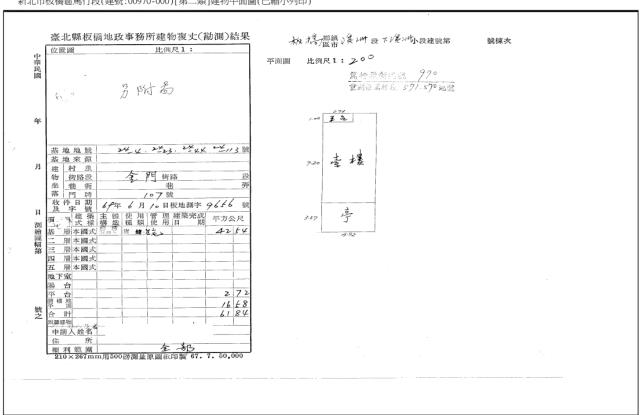 新北市板橋區篤行段(建號:00970-000)[第二類]建物平面圖(已縮小列印)
臺北縣板橋地政事務所建物複丈(勘測)結果
位置圖 比例尺1:
另附圖
中華民國 年 月 日 測繪圖幅第 號之
基地地號 24-4、24-23、24-44、24-113 號
基地來源
建物坐落
村里
街路段 金門 街路 段
巷衖 巷 弄
門牌 107號
收件日期及字號 69年6月10日板地測字9656號
項 建築式樣 主體構造 使用種類 管理使用 建築完成日期 平方公尺
基層 本國式 42 54
二層 本國式
三層 本國式
四層 本國式
五層 本國式
地下室
陽台
平台 2 72
騎樓地平面 16 58
合計 61 84
附屬建物
申請人姓名
住所
權利範圍 全部
210×267mm用500磅測量原圖紙印製 67.7.50,000
板橋 鄉鎮區市 溪洲 段 下溪洲 小段建號第 號棟次
平面圖 比例尺1:200
970
571-570地號
平台
壹樓
亭